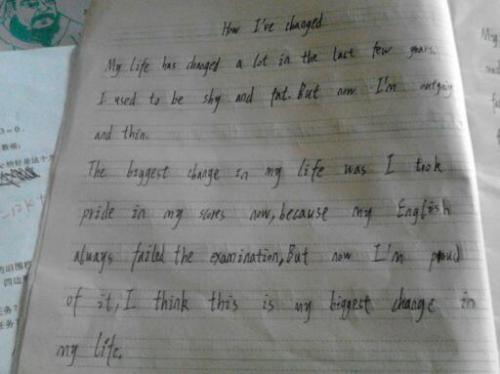 How I've changed
My life has changed a lot in the last few years.
I used to be shy and fat. But now I'm outgoing
and thin.
The biggest change in my life was I took
pride in my scores now, because my English
always failed the examination, But now I'm proud
of it, I think this is my biggest change in
my life.